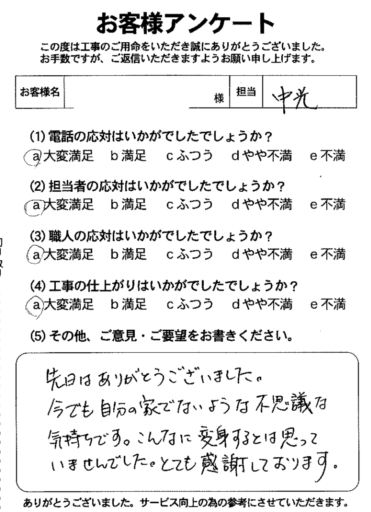 お客様アンケート
この度は工事のご用命をいただき誠にありがとうございました。
お手数ですが、ご返信いただきますようお願い申し上げます。
お客様名 様 担当 中光
(1) 電話の応対はいかがでしたでしょうか？
a 大変満足 b 満足 c ふつう d やや不満 e 不満
(2) 担当者の応対はいかがでしたでしょうか？
a 大変満足 b 満足 c ふつう d やや不満 e 不満
(3) 職人の応対はいかがでしたでしょうか？
a 大変満足 b 満足 c ふつう d やや不満 e 不満
(4) 工事の仕上がりはいかがでしたでしょうか？
a 大変満足 b 満足 c ふつう d やや不満 e 不満
(5) その他、ご意見・ご要望をお書きください。
先日はありがとうございました。
今でも自分の家でないような不思議な
気持ちです。こんなに変身するとは思って
いませんでした。とても感謝しております。
ありがとうございました。サービス向上の為の参考にさせていただきます。